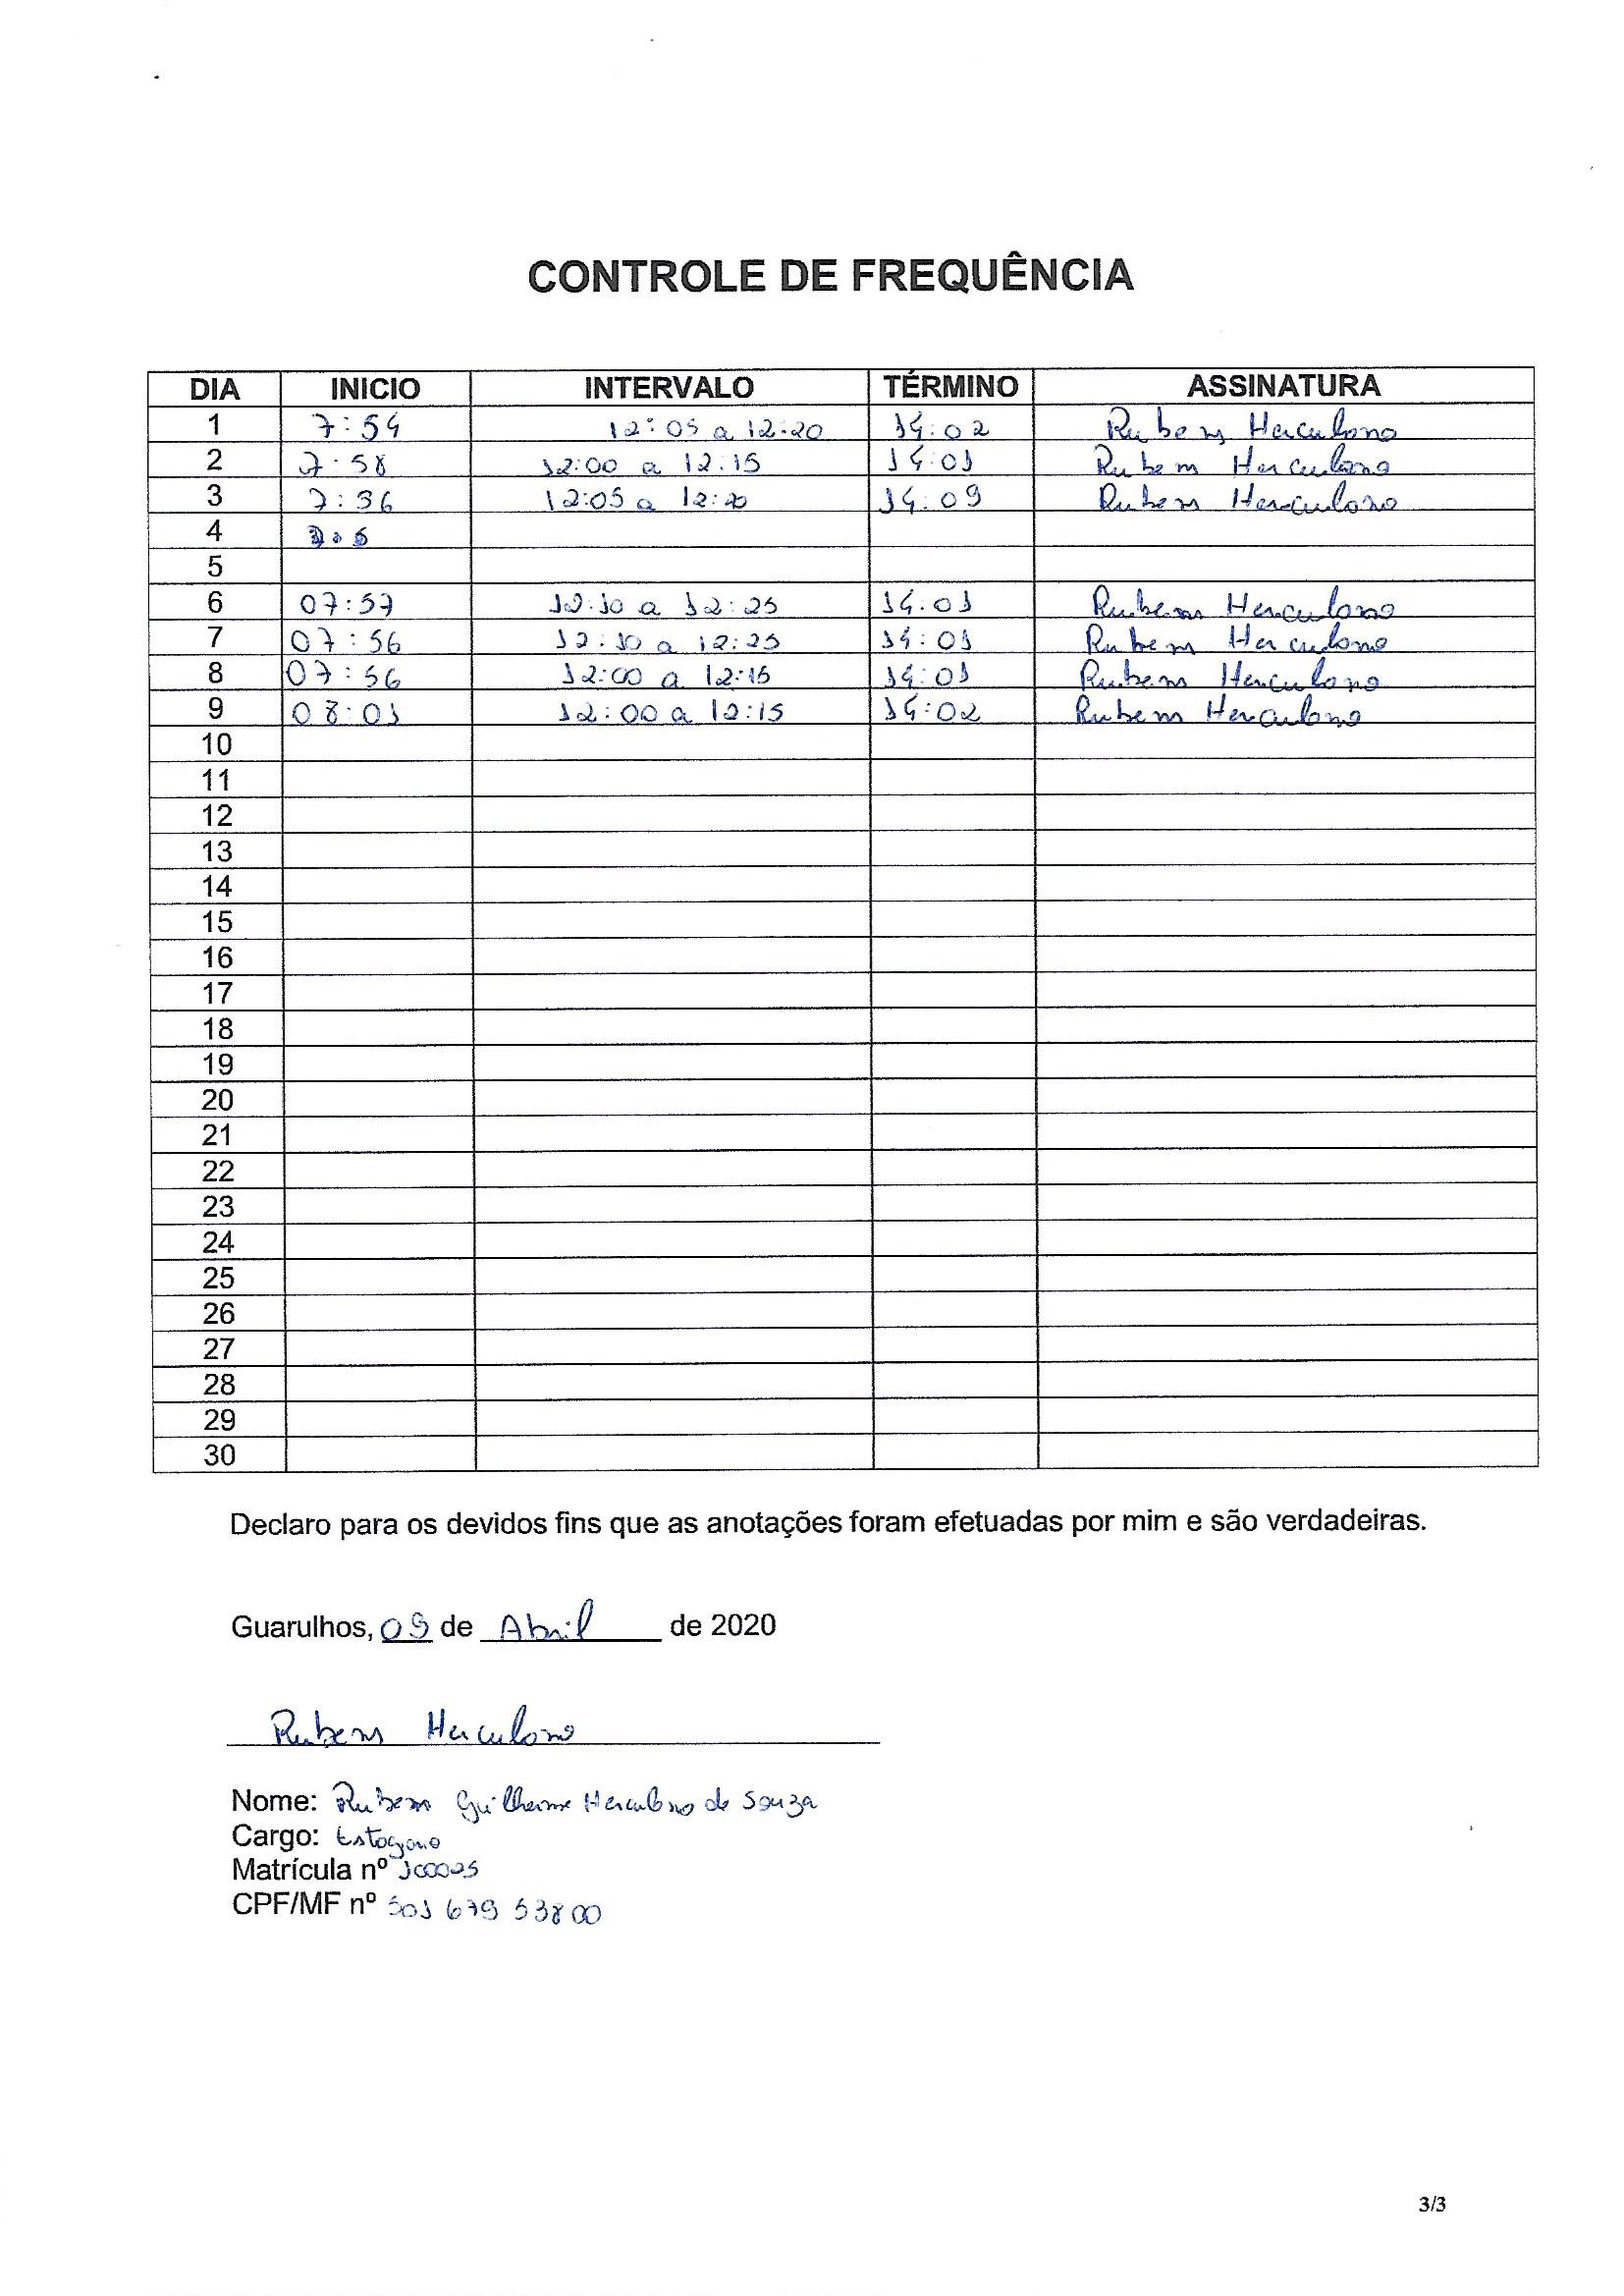 CONTROLE DE FREQUÊNCIA
DIA INICIO INTERVALO TÉRMINO ASSINATURA
1 7:54 12:05 a 12:20 14:02 Rubens Herculano
2 7:58 12:00 a 12:15 14:01 Rubens Herculano
3 7:36 12:05 a 12:20 14:09 Rubens Herculano
4
5
6 07:57 12:10 a 12:25 14:01 Rubens Herculano
7 07:56 12:10 a 12:25 14:01 Rubens Herculano
8 07:56 12:00 a 12:15 14:01 Rubens Herculano
9 08:01 12:00 a 12:15 14:02 Rubens Herculano
10
11
12
13
14
15
16
17
18
19
20
21
22
23
24
25
26
27
28
29
30
Declaro para os devidos fins que as anotações foram efetuadas por mim e são verdadeiras.
Guarulhos, 09 de Abril de 2020
Rubens Herculano
Nome: Rubens Guilherme Herculano de Souza
Cargo: Estagiário
Matrícula nº
CPF/MF nº 501 679 538 00
3/3